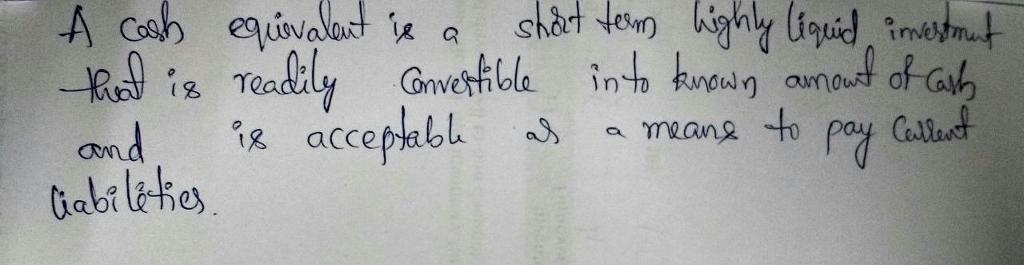 A cash equivalent is a short term highly liquid investment
that is readily convertible into known amount of cash
and is acceptable as a means to pay current
liabilities.